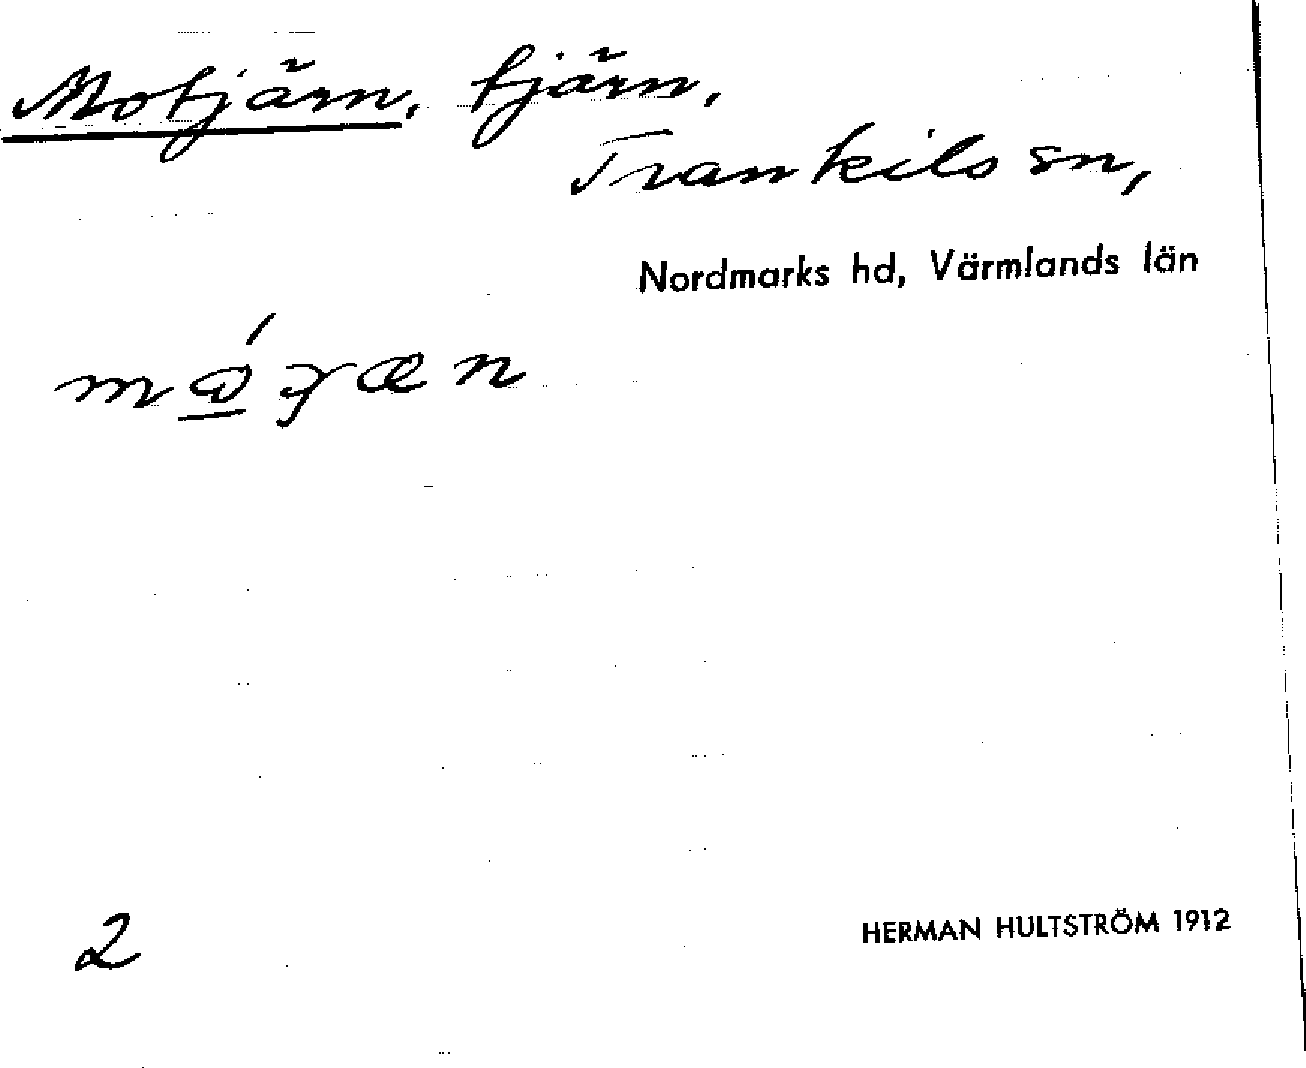 Motjärn, tjärn,
Trankils sn,
Nordmarks hd, Värmlands län
2
HERMAN HULTSTRÖM 1912